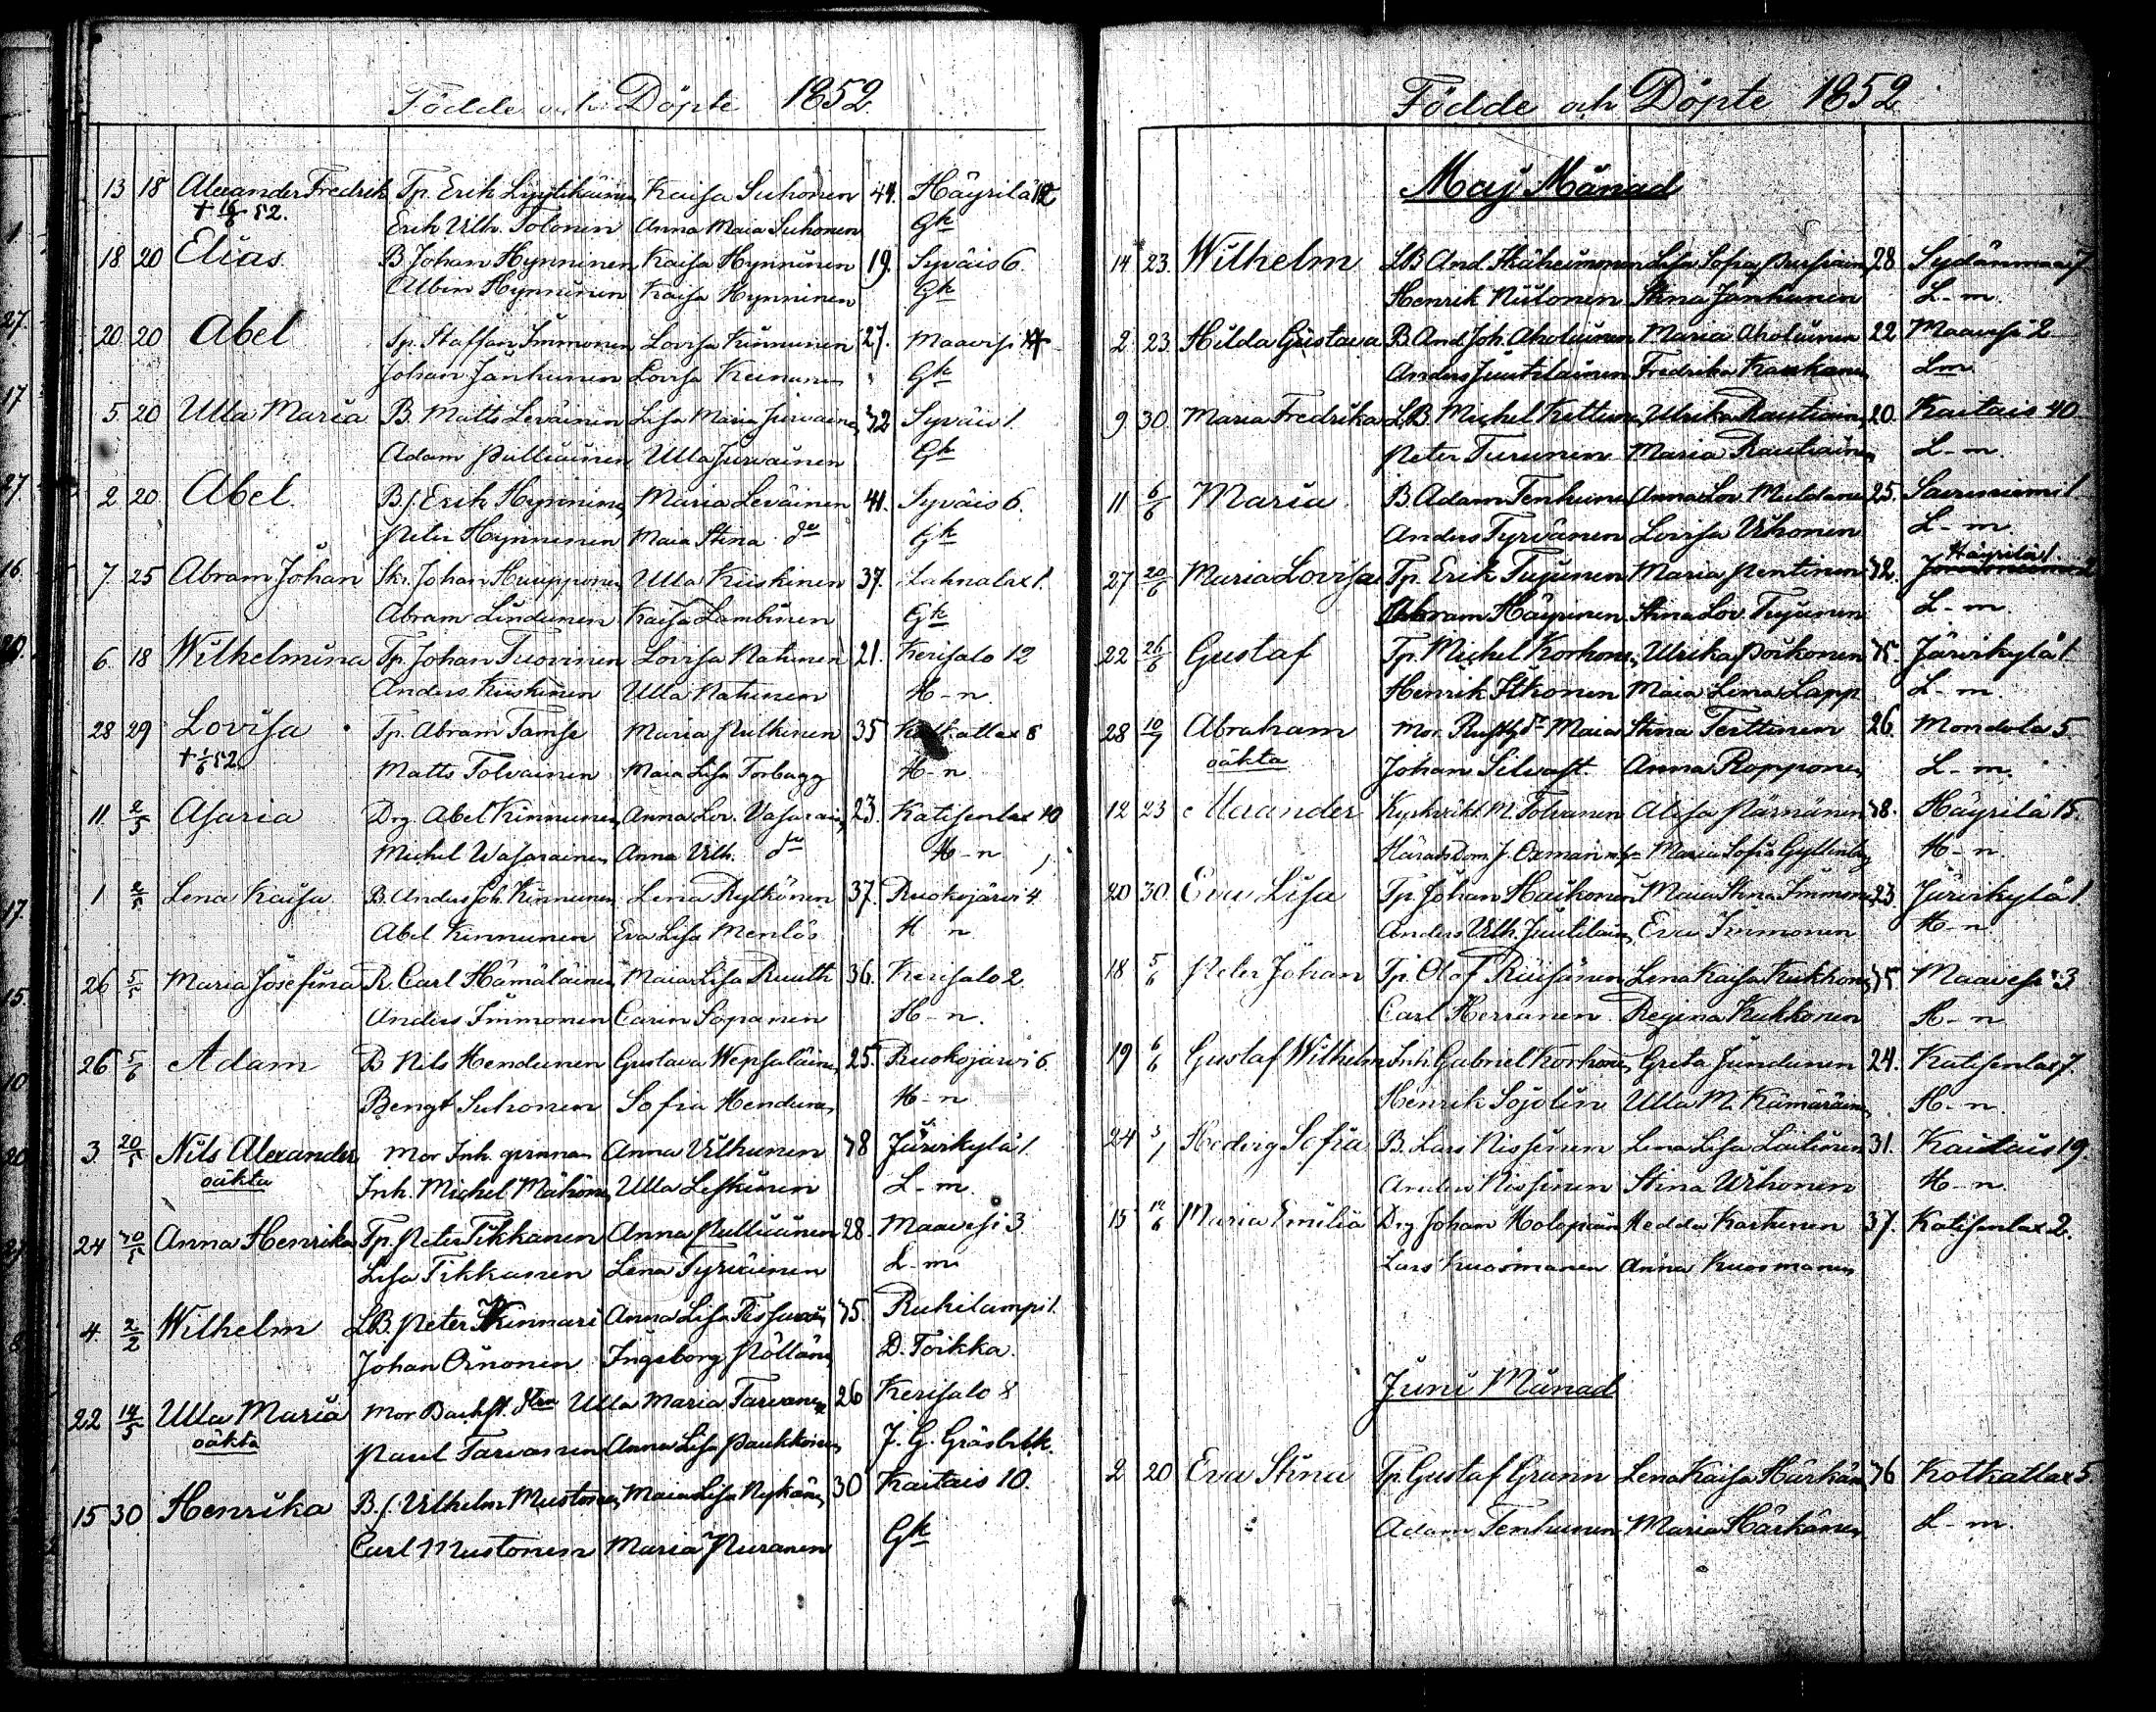 Födde och Döpte 1852
13 18 Alexander Fredrik Tp. Erik Lyytikäinen Kaisa Suhonen 44. Häyrilä 12
† 16/6 52. Erik Vilh. Tolonen Anna Maia Suhonen Gk
18 20 Elias B. Johan Hynninen Kaisa Hynninen 19. Syväis 6.
Albin Hynninen Kaisa Hynninen Gk
20 20 Abel Tp. Staffan Immonen Lovisa Kinnunen 27. Maavesi
Johan Janhunen Lovisa Keinanen Gk
5 20 Ulla Maria B. Matts Leväinen Lisa Maria Jurvainen 32 Syväis 1.
Adam Pulliainen Ulla Jurvainen Gk
2 20 Abel. B.s. Erik Hynninen Maria Leväinen 41. Syväis 6.
Peter Hynninen Maia Stina do Gk
7 25 Abram Johan Skr. Johan Huupponen Ulla Kiiskinen 37. Lahnalax 1.
Abram Lindunen Kaisa Lambinen Gk
6. 18 Wilhelmina Tp. Johan Tuovinen Lovisa Natunen 21. Kerisalo 12
Anders Kiiskinen Ulla Natunen H-n.
28 29 Lovisa Tp. Abram Tamse Maria Pulkinen 35 Kotkatlax 8
† 1/6 52. Matts Tolvainen Maia Lisa Torbagg H-n.
11 2/5 Asaria Drg. Abel Kinnunen Anna Lov. Vasarain 23. Katisenlax 10
Michel Wasarainen Anna Vilh. do H-n
1 2/5 Lena Kaisa B. Anders Joh. Kinnunen Lena Rytkönen 37. Ruokojärvi 4.
Abel Kinnunen Eva Lisa Menlös H n
26 5/5 Maria Josefina R. Carl Hämäläinen Maia Lisa Ruuth 36. Kerisalo 2.
Anders Immonen Carin Sopanen H-n.
26 5/6 Adam B Nils Hendunen Gustava Wepsäläinen 25. Ruokojärvi 6.
Bengt Suhonen Sofia Hendunen H-n
3 20/5 Nils Alexander Mor Inh. qvinnan Anna Vilhunen 38 Järvikylä 1.
oäkta Inh. Michel Mähönen Ulla Leskinen L-m.
24 30/5 Anna Henrika Tp. Peter Tikkanen Anna Pulliainen 28. Maavesi 3.
Lisa Tikkanen Lena Tyriäinen L-m
4 2/2 Wilhelm LB. Peter Kinnari Anna Lisa 35. Ruhilampi 1.
Johan Oinonen Ingeborg Pöllänen D. Toikka.
22 14/5 Ulla Maria Mor Backst. dtrn Ulla Maria Tarvanen 26 Kerisalo 8
oäkta Paul Tarvanen Anna Lisa Paukkonen J. G. Gräsb.lk.
15 30 Henrika B.s. Vilhelm Mustonen Maia Lisa Nykänen 30 Kaitais 10.
Carl Mustonen Maria Puranen Gk
Födde och Döpte 1852
Maj Månad
14 23. Wilhelm LB And. Ikäheimonen Lisa Sofia Pursiain 28 Sydänmaa 7
Henrik Niilonen Stina Janhunen L-m.
2. 23. Hilda Gustava B. And. Joh. Aholainen Maria Aholainen 22. Maavesi 2
Anders Juutilainen Fredrika Kaukanen Lm.
9 30. Maria Fredrika LB. Michel Kettunen Ulrika Rautiain 20. Kaitais 40
Peter Turunen Maria Rautiainen L-m.
11 6/6 Maria B. Adam Tenhunen Anna Lov. Muldanen 25. 1
Anders Tyrvänen Lovisa Uhonen L-m
27 20/6 Maria Lovisa Tp. Erik Tujunen Maria Pentinen 32. Häyrilä 1.
Abram Häyrinen Stina Lov. Tujunen L-m.
22 26/6 Gustaf Tp. Michel Korhonen Ulrika Poikonen 35. Järvikylä 1
Henrik Itkonen Maia Lena Lapp L-m.
28 10/7 Abraham Mor. Rusth. dr Maia Stina Terttinen 26. Mondola 5
oäkta Johan Silvast. Anna Ropponen L-m.
12 23 Alexander Kyrkvärd. M. Tolvanen Alisa Pärnänen 38. Häyrilä 15.
HäradsDom. J. Oxman Maria Sofia Gyllenbög H-n.
20 30. Eva Lisa Tp. Johan Haikonen Maia Stina Immonen 23. Järvikylä 1
Anders Vilh. Juutilain Eva Immonen H-n.
18 5/6 Peter Johan Tp. Olof Riisänen Lena Kaisa Kukkonen 35. Maavesi 3.
Carl Herranen Regina Kukkonen H-n
19 6/6 Gustaf Wilhelm Inh. Gabriel Korhonen Greta Jundunen 24. Katisenlax 7.
Henrik Sojolin Ulla M. Kämäräinen H-n.
24 3/7 Hedvig Sofia B. Lars Nissinen Lena Lisa Laitinen 31. Kaitais 19.
Anders Nissinen Stina Uhonen H-n.
15 12/6 Maria Emilia Drg Johan Holopain Hedda Karhunen 37. Katisenlax 2.
Lars Kuosmanen Anna Kuosmanen
Juni Månad
2 20 Eva Stina Tp. Gustaf Grann Lena Kaisa Härkän 36 Kotkatlax 5
Adam Tenhunen Maria Härkänen L-m.